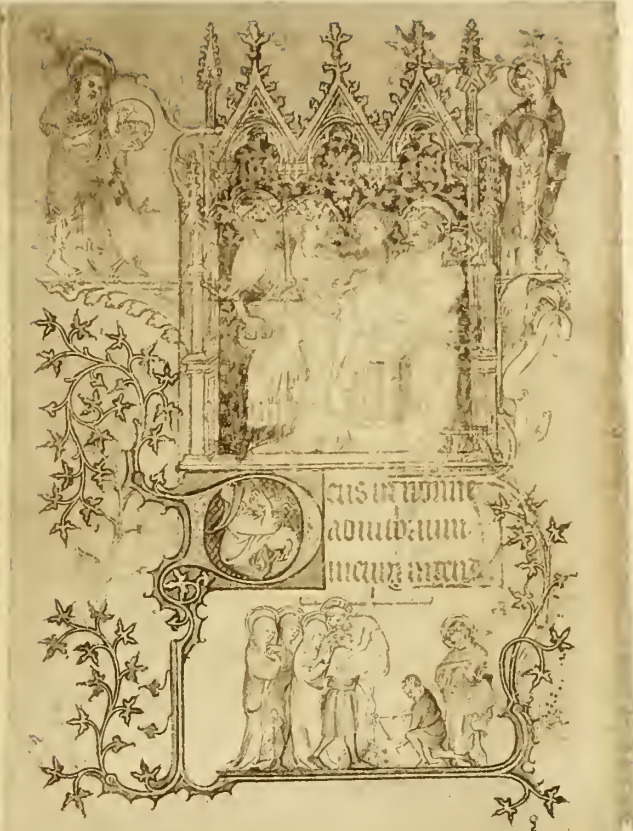 Deus in
adiutorium
meum intende